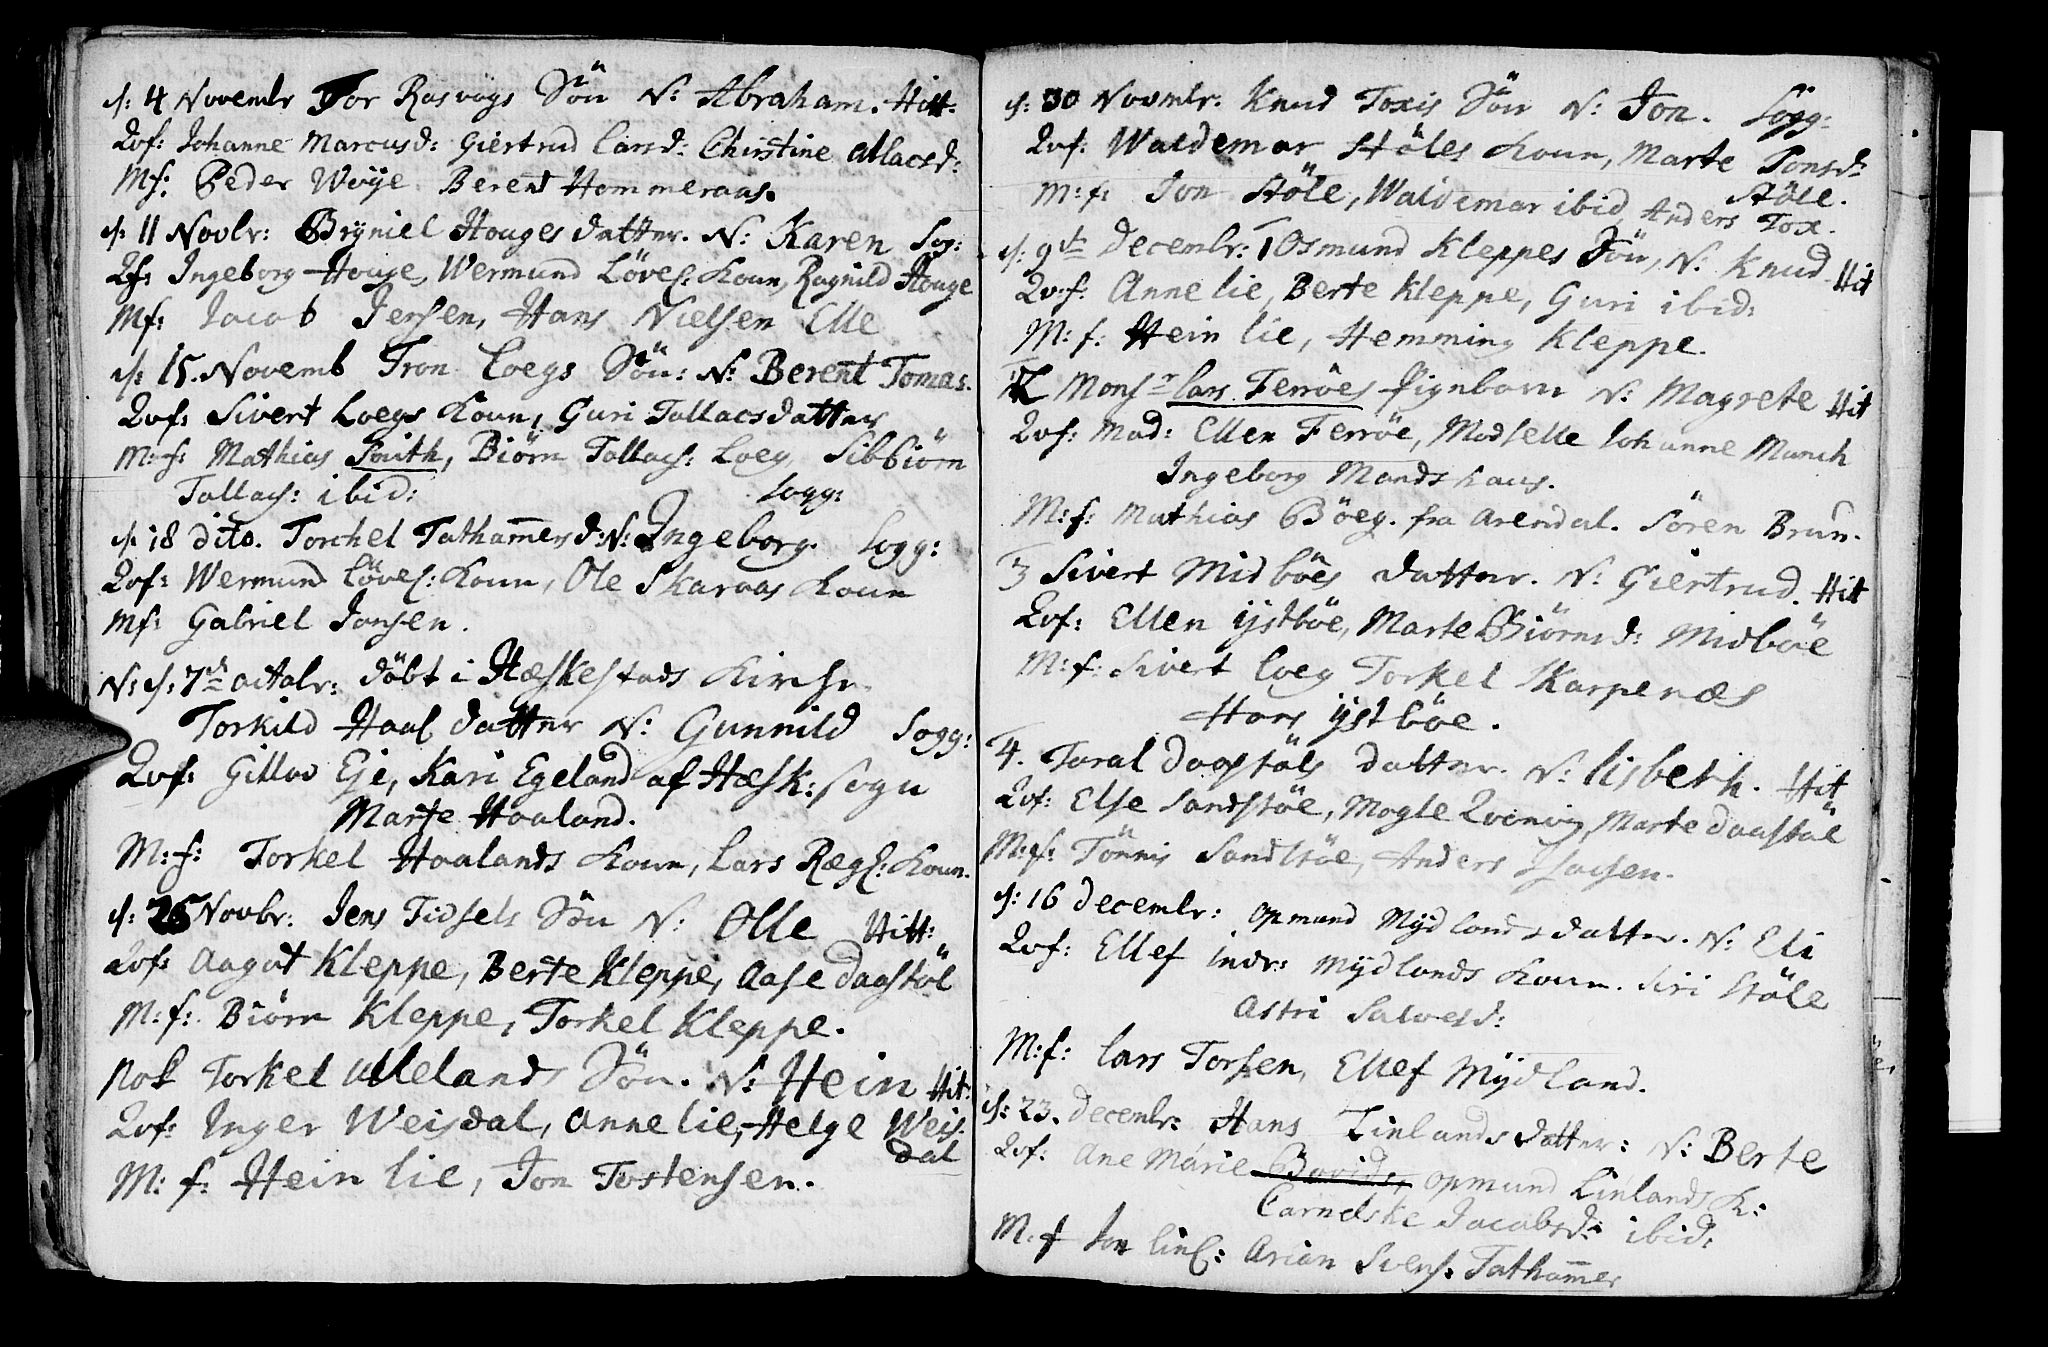 d: 4 Novemlr Tor Rasvogs Sön N: Abraham. Hitt:
Qvf: Johanne Marcusd: Giertrud Larsd: Christine Allacsd:
Mf: Peder Woÿe Berent Hommeraas.
d: 11 Novlr: Brÿniel Houges datter. N: Karen Sog:
Qf: Ingeborg Houge, Wermund Löves: Koun, Ragnild Houge
Mf: Jacob Jersen, Hans Nielsen Elle
d: 15. Novemb Tron Loegs Sön: N: Berent Tomas.
Qvf: Sivert Loegs Koun, Guri Tallacsdatter
M:f: Mathias Smith, Biörn Tallacs: Loeg Sibbiörn
Tallacs: ibid: Sogg:
d: 18 dito. Torchel Tathamers d: N: Ingeborg. Sogg:
Qvf: Wermund Löves: Koun, Ole Skaraas Koun
Mf: Gabriel Jonsen.
N: d: 7de octobr: döbt i Hæskestads Kirche
Torkild Haal datter N: Gunnild Sogg:
Qvf: Gillov Eje, Kari Egeland af Hæsk: sogn
Marte Haaland.
M:f: Torkel Haalands Koun, Lars Rægs: Koun.
d: 25 Novbr: Jens Tidsels Sön N: Olle Hitt:
Qvf: Aagot Kleppe, Berte Kleppe, Aase Daastöl
M:f: Biörn Kleppe, Torkel Kleppe.
nok Torkel Allelands Sön. N: Hein Hit:
Qvf: Inger Weisdal, Anne Lie, Helge Weis:
dal
M:f: Hein Lie, Jon Tostensen.
d: 30 Novmlr: Knud Toxis Sön N: Jon. Sogg:
Qvf: Waldemar Stöles Koun, Marte Jonsd:
Stöle.
M:f: Jon Stöle, Waldemar ibid, Anders Tox.
d: 9de Decemlr: 1 Osmund Kleppes Sön, N: Knud Hit
Qv:f: Anne Lie, Berte Kleppe, Guri ibid:
M:f: Hein Lie, Hemming Kleppe.
2 Monsr Lars Ferröes Pignbarn N: Magrete Hit
Qvf: Mad: Ellen Ferröe, Modselle Johanne Munch
Ingeborg Mands Kaus.
M:f: Mathias Böeg. fra Arendal. Sören Brun.
3 Sivert Midböes datter. N: Giertrud. Hit
Qvf: Ellen ÿstböe, Marte Biörnsd: Midböe
M:f: Sivert Loeg Torkel Skarpenæs
Hans ÿstböe.
4. Taral Daastöls datter. N: Lisbeth. Hit
Qvf: Else Sandstöe, Mogle Qvinvig, Marte Daastöl
M:f: Tönnis Sandstöe, Anders Isacsen.
d: 16 Decemlr: Opmund Mÿdlands datter. N: Eli
Qvf: Ellef indr: Mÿdlands Koun. Siri Stöle
Astri Salvesd:
M:f: Lars Torsen, Ellef Mÿdland.
d: 23. Decemlr: Hans Linlands datter: N: Berte
Qvf: Ane Marie Opmund Linlands K:
Carnelske Jacobsd: ibid:
M:f Jon Linl: Arian Svens: Tathamer